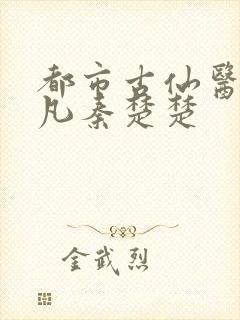 都市古仙醫
凡秦楚楚
金武烈